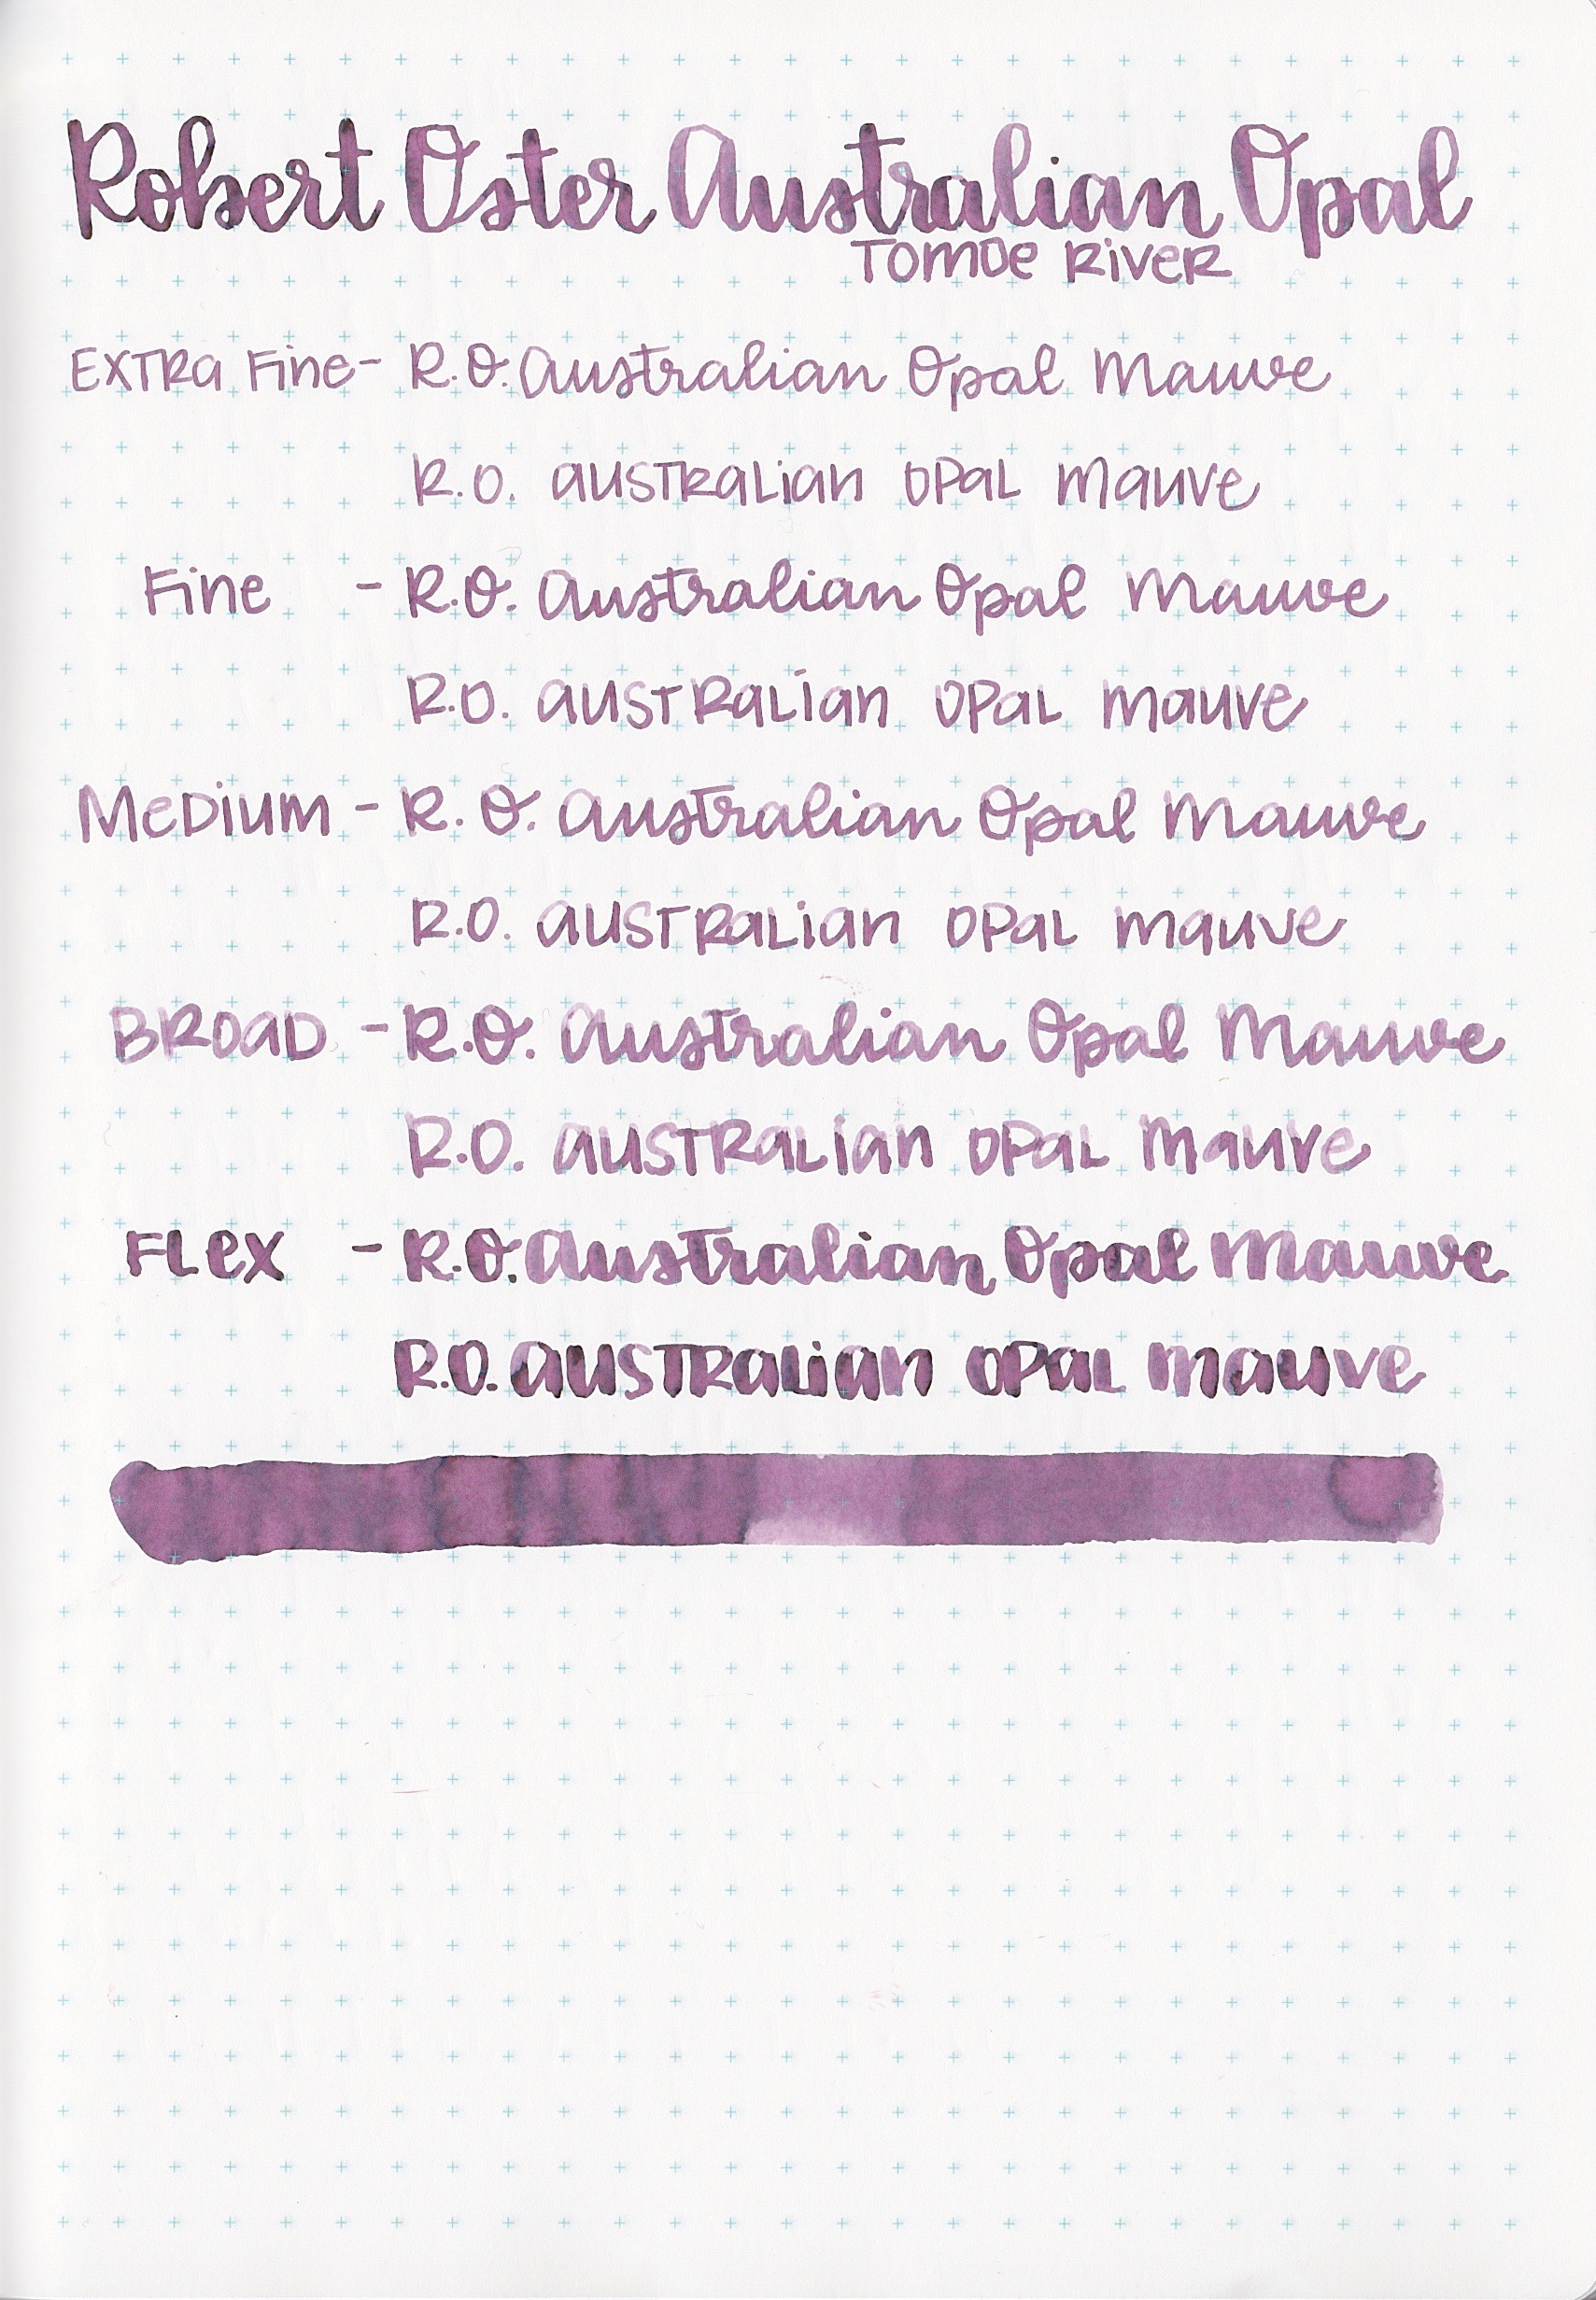 Robert Oster Australian Opal
Tomoe River
Extra Fine - R.O. Australian Opal Mauve
R.O. Australian Opal Mauve
Fine - R.O. Australian Opal Mauve
R.O. Australian Opal Mauve
Medium - R.O. Australian Opal Mauve
R.O. Australian Opal Mauve
Broad - R.O. Australian Opal Mauve
R.O. Australian Opal Mauve
Flex - R.O. Australian Opal Mauve
R.O. Australian Opal Mauve